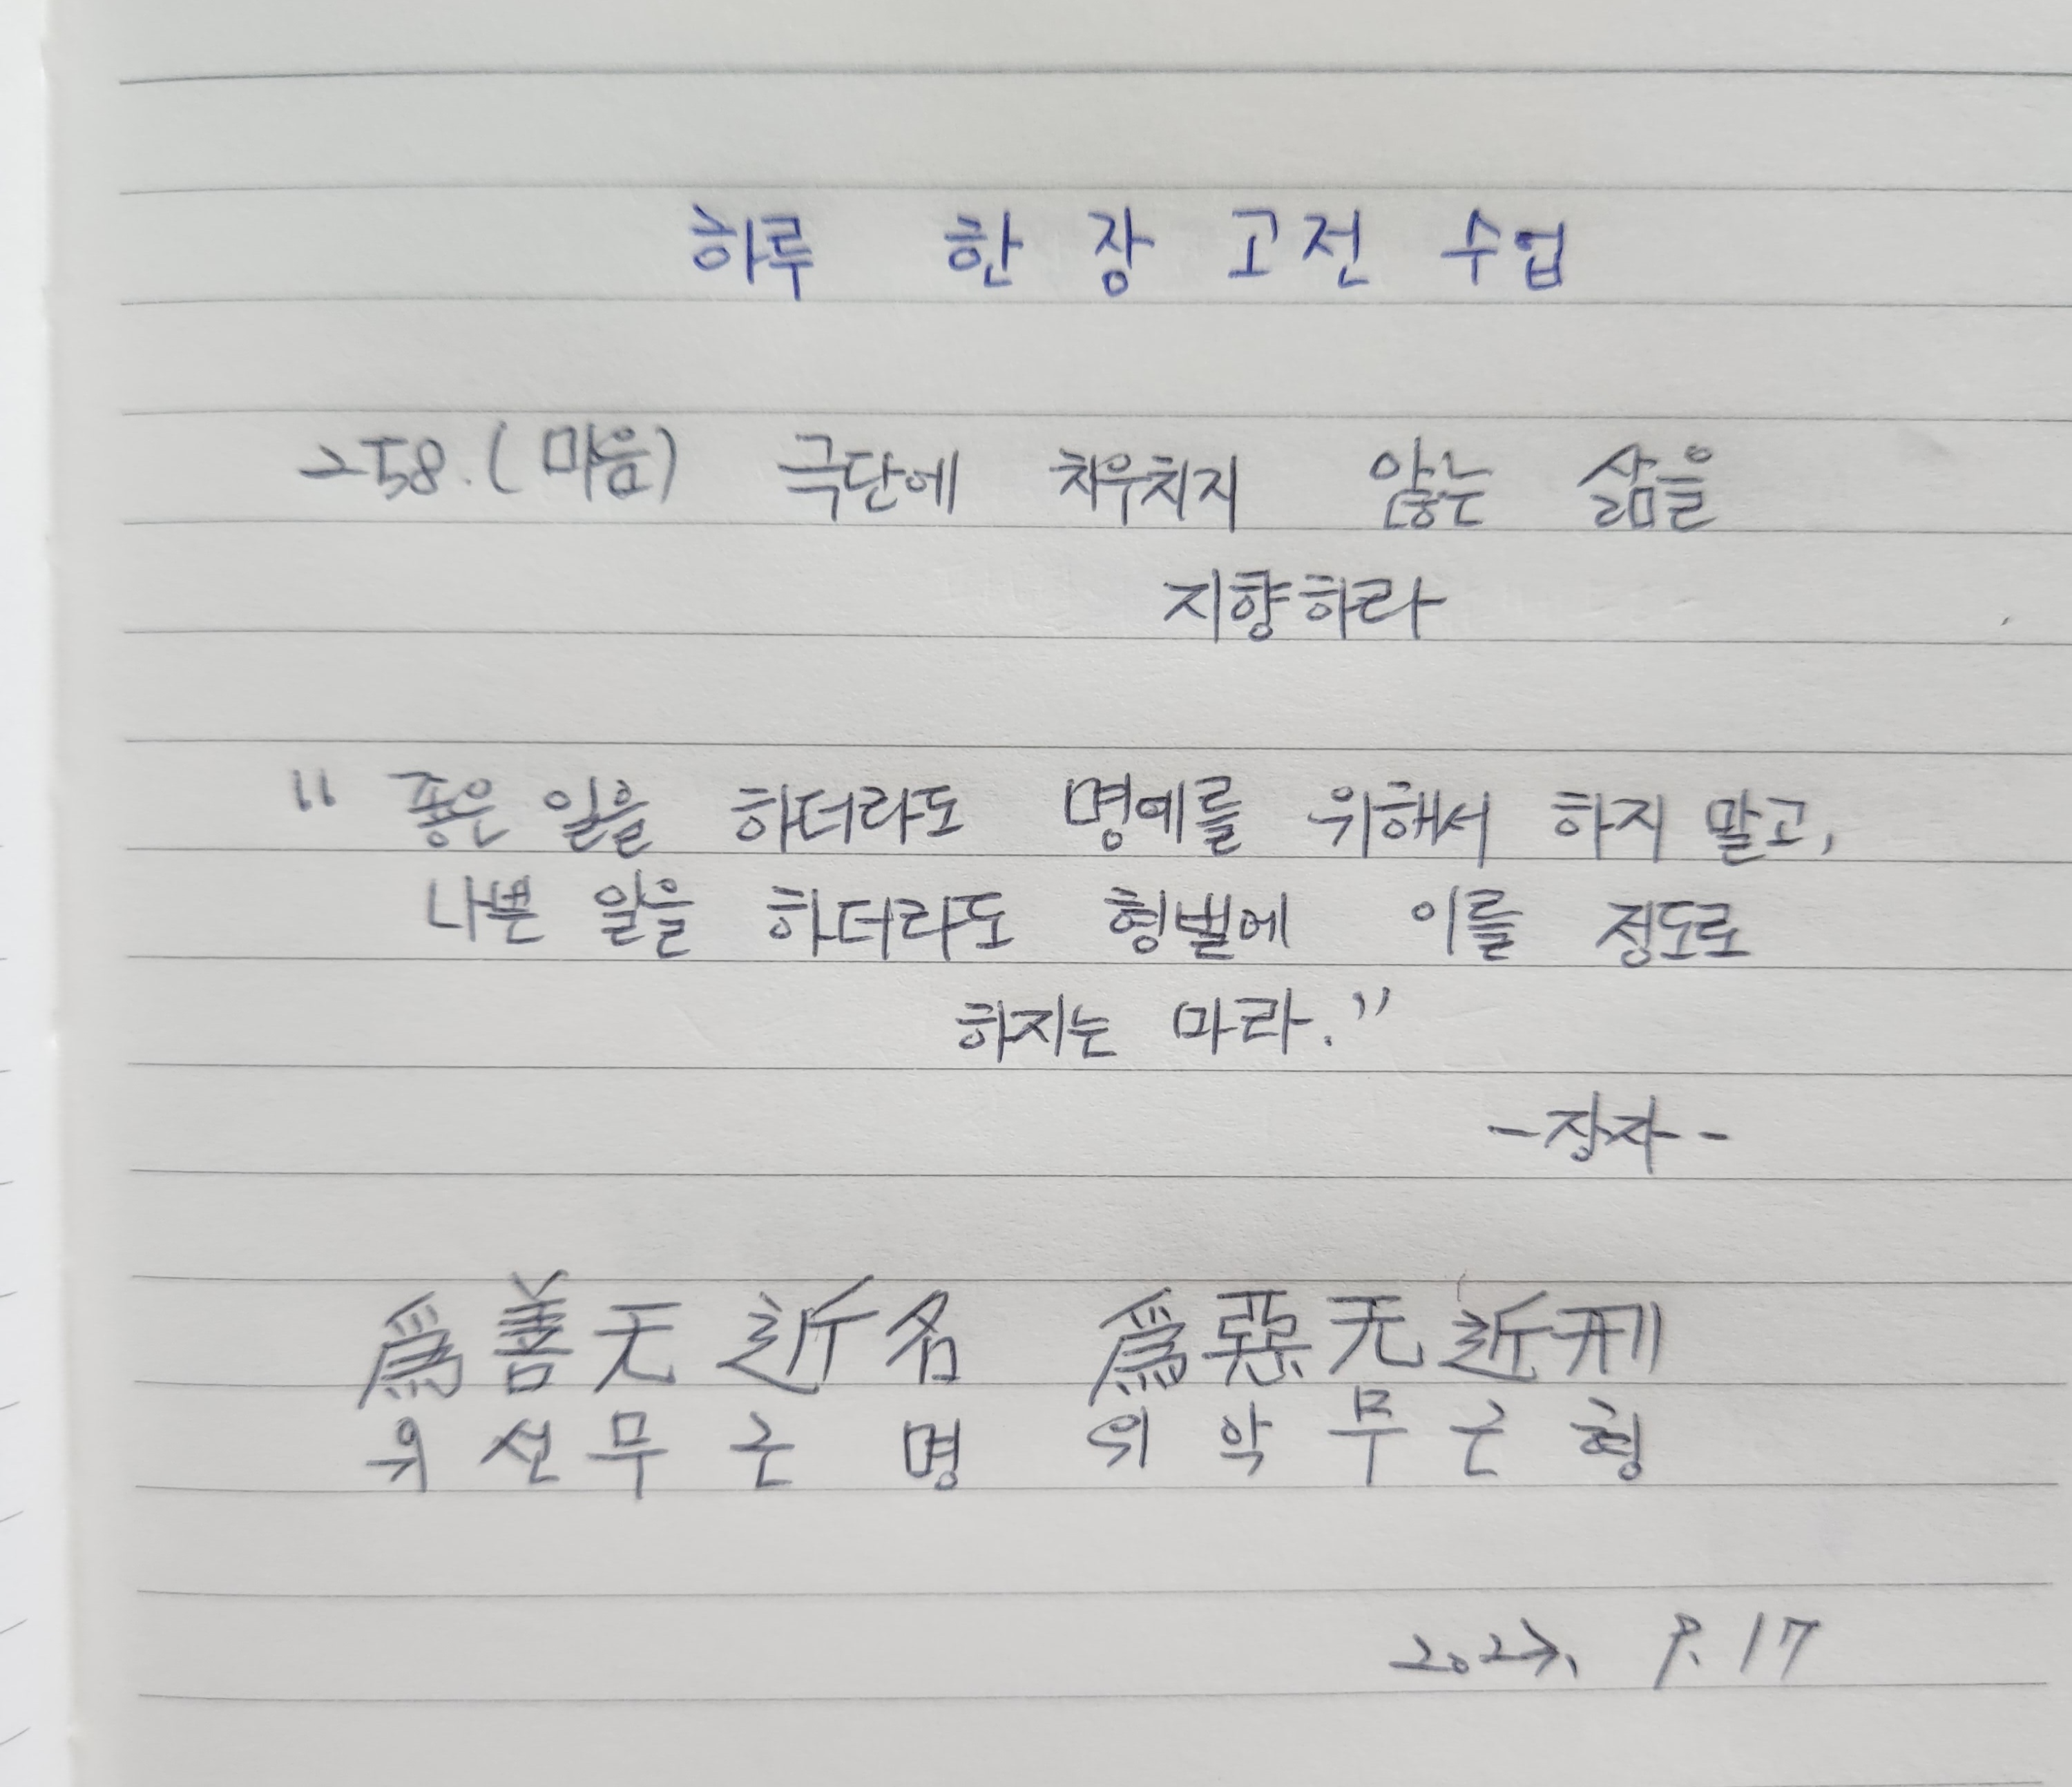 하루 한 장 고전 수업
258. (마음) 극단에 치우치지 않는 삶을
지향하라
" 좋은 일을 하더라도 명예를 위해서 하지 말고,
나쁜 일을 하더라도 형벌에 이를 정도로
하지는 마라."
- 장자 -
爲善无近名 爲惡无近刑
위선무근명 위악무근형
9. 17